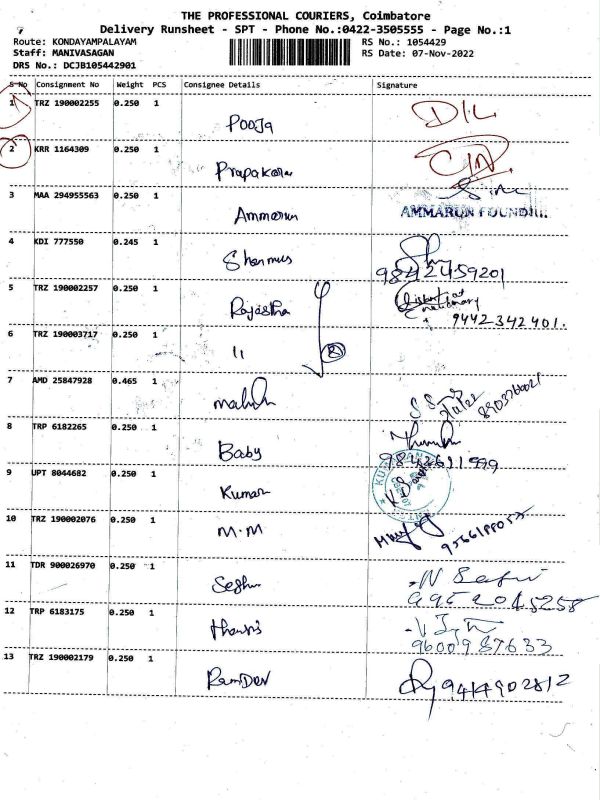 THE PROFESSIONAL COURIERS, Coimbatore
Delivery Runsheet - SPT - Phone No.:0422-3505555 - Page No.:1
Route: KONDAYAMPALAYAM RS No.: 1054429
Staff: MANIVASAGAN RS Date: 07-Nov-2022
DRS No.: DCJB105442901
S No Consignment No Weight PCS Consignee Details Signature
1 TRZ 190002255 0.250 1 Pooja D.L
2 KRR 1164309 0.250 1 Prapakaran
3 MAA 294955563 0.250 1 Ammarun AMMARUN FOUNDRI
4 KDI 777550 0.245 1 Shanmus 9842459201
5 TRZ 190002257 0.250 1 Rajastha 9442342401.
6 TRZ 190003717 0.250 1 11 2
7 AMD 25847928 0.465 1
8 TRP 6182265 0.250 1 Baby
9 UPT 8044682 0.250 1 Kumar
10 TRZ 190002076 0.250 1 M.M
11 TDR 900026970 0.250 1 9952045258
12 TRP 6183175 0.250 1 9600987633
13 TRZ 190002179 0.250 1 RamDev 9414902812